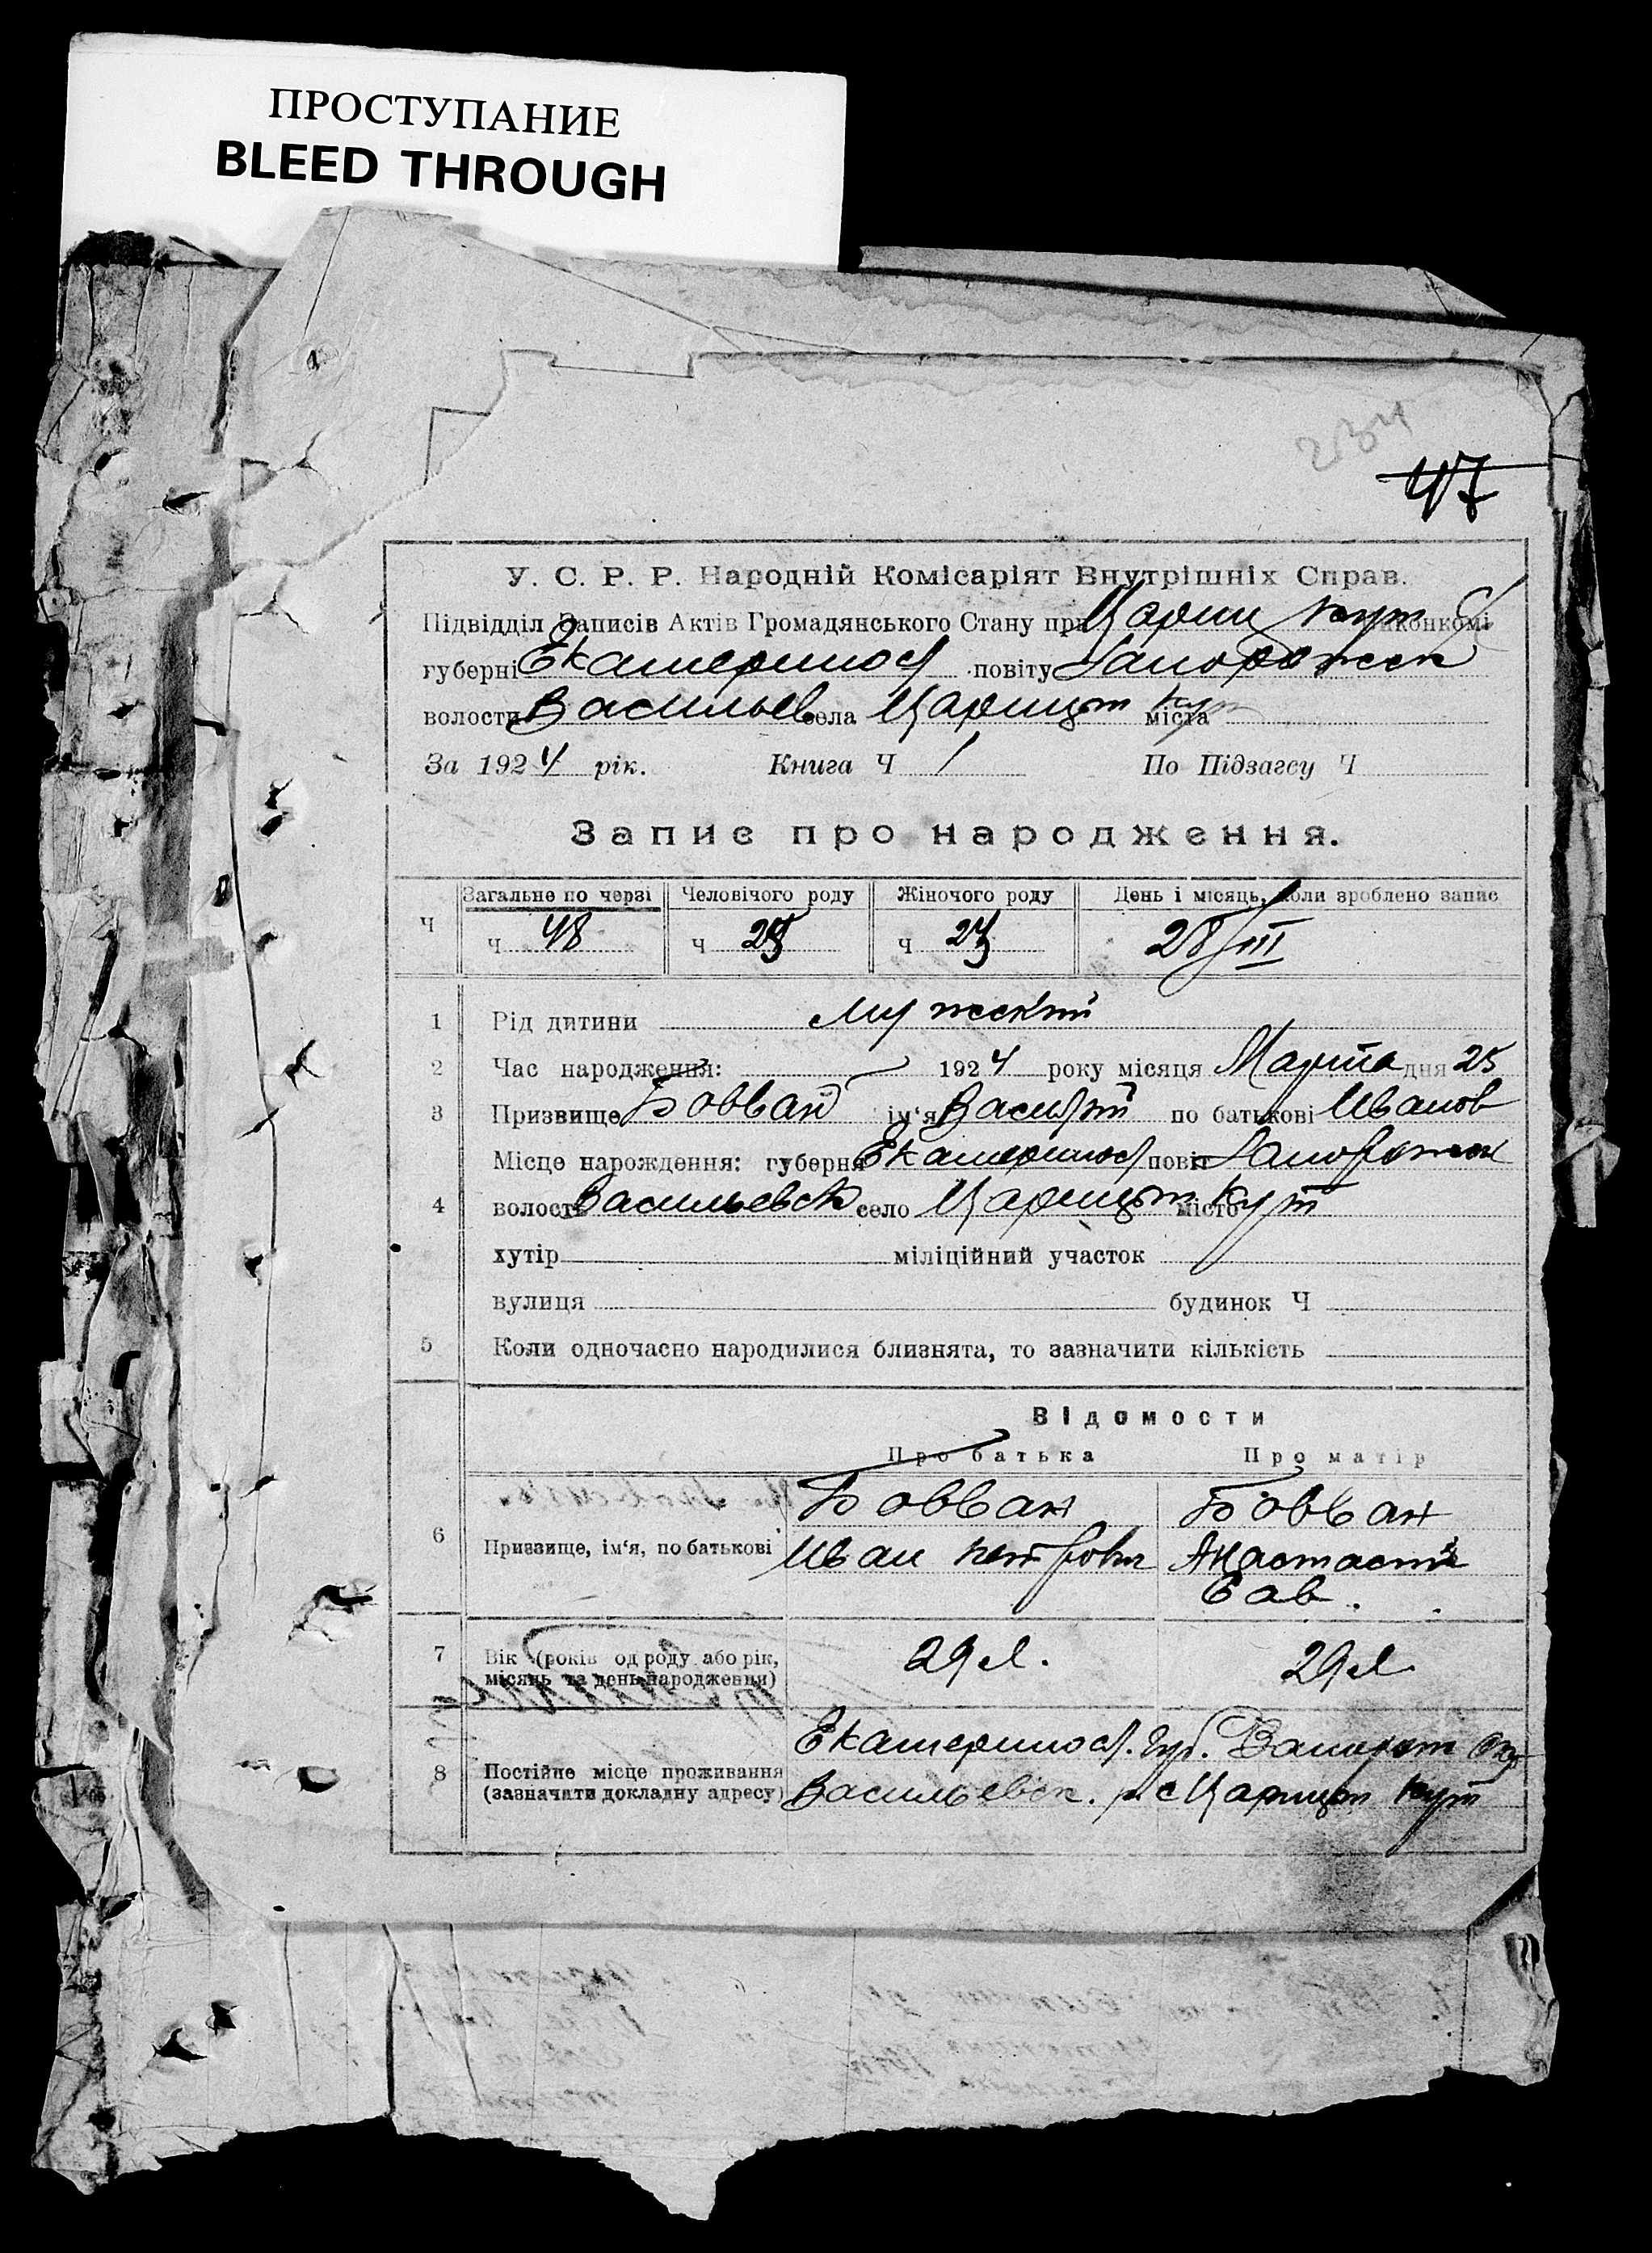 ПРОСТУПАНИЕ
BLEED THROUGH
234
47
У. С. Р. Р. Народній Комісаріят Внутрішніх Справ.
Підвідділ Записів Актів Громадянського Стану при Цариц Кут С/ виконкомі
губерні Екатеринос повіту Запорожск
волости Васильев села Царицын Кут міста
За 1924 рік. Книга Ч 1 По Підзагсу Ч
Запис про народження.
Ч Загальне по черзі Человічого роду Жіночого роду День і місяць, коли зроблено запис
ч 48 ч 25 ч 23 28/III
1 Рід дитини Мужеский
2 Час народження: 1924 року місяця Марта дня 25
3 Призвище Бовван ім‘я Василий по батькові Иванов
Місце нарождення: губерня Екатеринос повіт Запорожск
4 волость Васильевск село Царицын Кут місто
хутір міліційний участок
вулиця будинок Ч
5 Коли одночасно народилися близнята, то зазначити кількість
Відомости
Про батька Про матір
Бовван Бовван
6 Призвище, ім‘я, по батькові Иван Петрович Анастасия
Сав.
7 Вік (років од роду або рік, місяць та день народження) 29 л. 29 л
Екатеринос. Губ. Запорож Окр
8 Постійне місце проживання (зазначити докладну адресу) Васильевск. р. с Царицын Кут